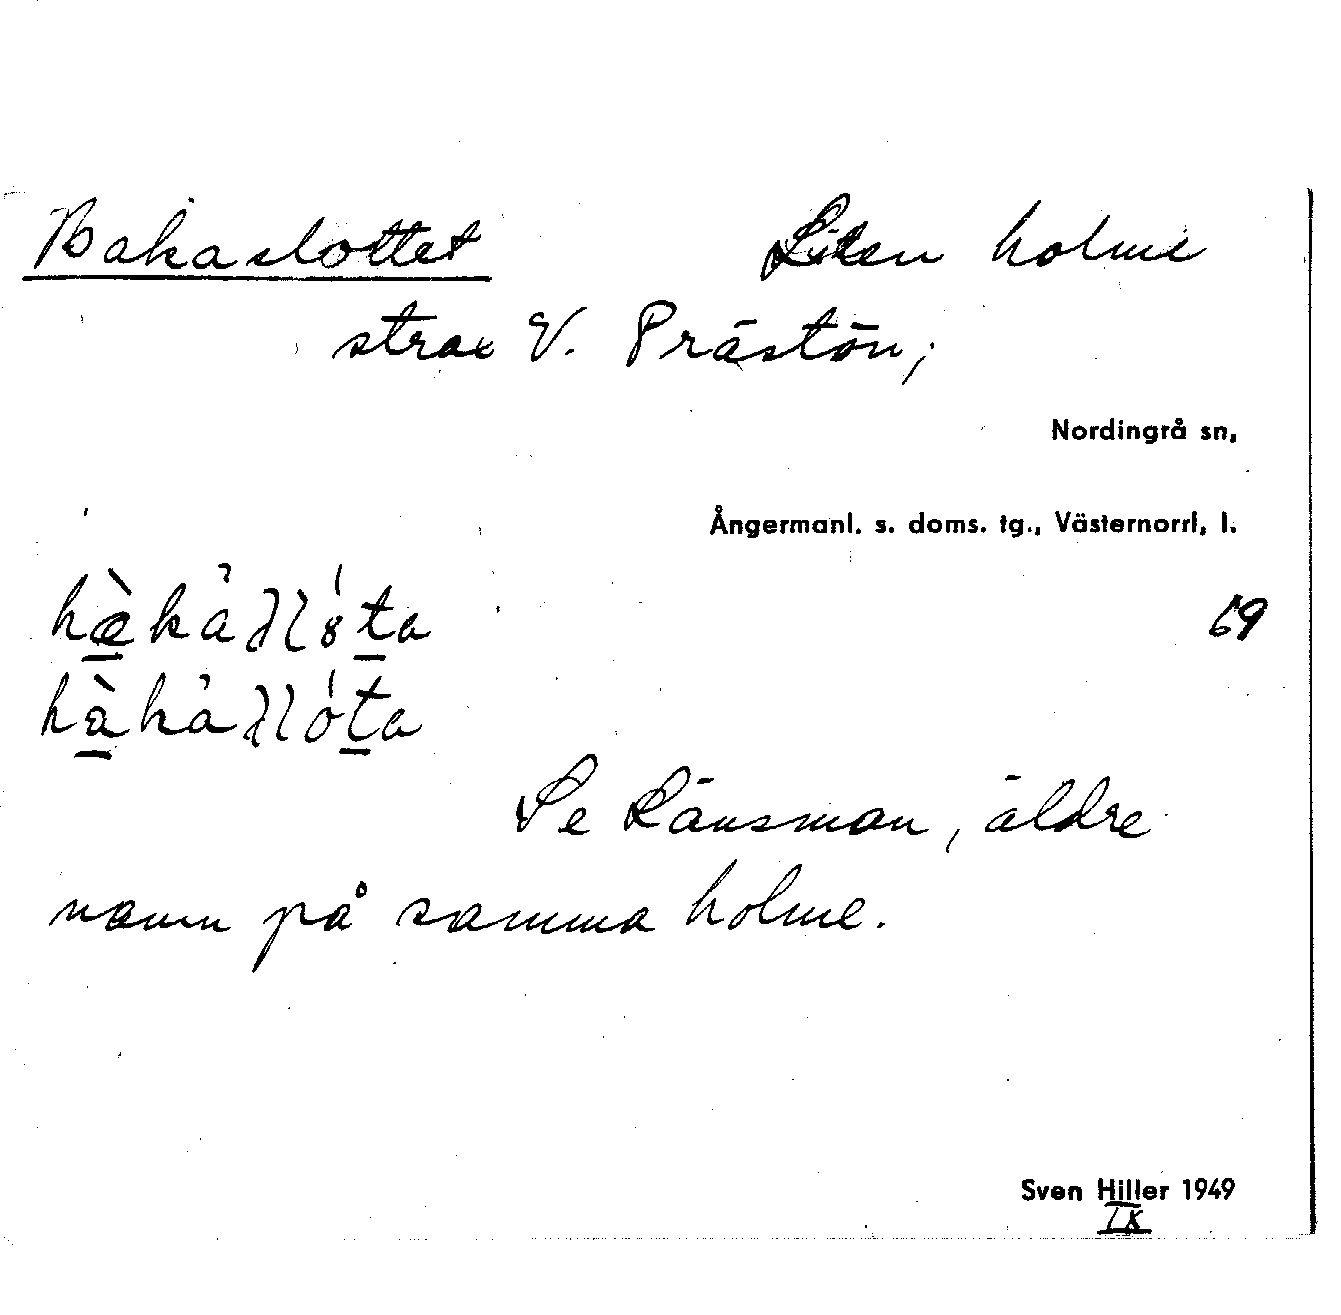 Bakaslottet Liten holme
strax V. Prästön;
Nordingrå sn,
Ångermanl. s. doms. tg., Västernorrl, l.
69
Se Länsman, äldre
namn på samma holme.
Sven Hiller 1949
IX